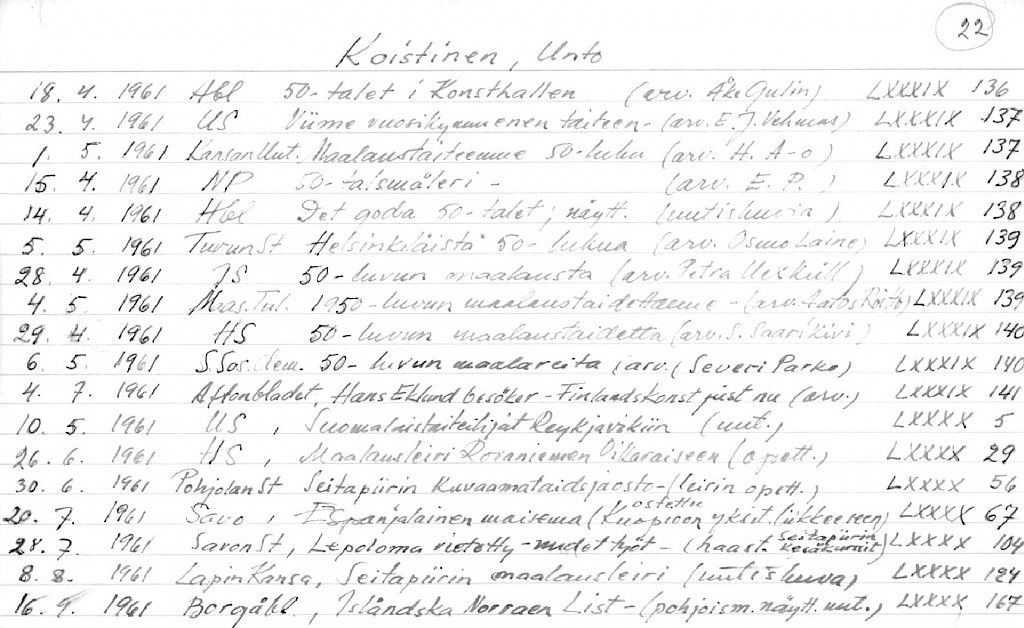 22
Koistinen, Unto
18. 4. 1961 Hbl 50-talet i Konsthallen (arv. Åke Gulin) LXXXIX 136
23. 4. 1961 US Viime vuosikymmenen taiteen- (arv. E.J. Vehmas) LXXXIX 137
1. 5. 1961 KansanUut. Maalaustaiteemme 50-luku (arv. H. A-o) LXXXIX 137
15. 4. 1961 NP 50-talsmåleri - (arv. E. P.) LXXXIX 138
14. 4. 1961 Hbl Det goda 50-talet; näytt. (uutiskuvia) LXXXIX 138
5. 5. 1961 TurunSt Helsinkiläistä 50-lukua (arv. Osmo Laine) LXXXIX 139
28. 4. 1961 IS 50-luvun maalausta (arv. Petra Uexküll) LXXXIX 139
4. 5. 1961 Maas.Tul. 1950-luvun maalaustaidettamme - (arv. Aatos Röitto) LXXXIX 139
29. 4. 1961 HS 50-luvun maalaustaidetta (arv. S. Saarikivi) LXXXIX 140
6. 5. 1961 S.Sos.dem. 50-luvun maalareita (arv. (Severi Parko) LXXXIX 140
4. 7. 1961 Aftonbladet, Hans Eklund besöker - Finlandskonst just nu (arv.) LXXXIX 141
10. 5. 1961 US, Suomalaistaiteilijat Reykjavikiin (uut.) LXXXX 5
26. 6. 1961 HS, Maalausleiri Rovaniemen Oikaraiseen (opett.) LXXXX 29
30. 6. 1961 PohjolanSt Seitapiirin Kuvaamataidejaosto- (leirin opett.) LXXXX 56
20. 7. 1961 Savo, Espanjalainen maisema (Kuopioon ostettu yksit. liikkeeseen) LXXXX 67
28. 7. 1961 SavonSt, Lepoloma vietetty - uudet työt - (haast. Seitapiirin kesäkurssit) LXXXX 104
8. 8. 1961 LapinKansa, Seitapiirin maalausleiri (uutiskuva) LXXXX 124
16. 9. 1961 Borgåbl., Isländska Norraen List - (pohjoism. näytt. uut.) LXXXX 167